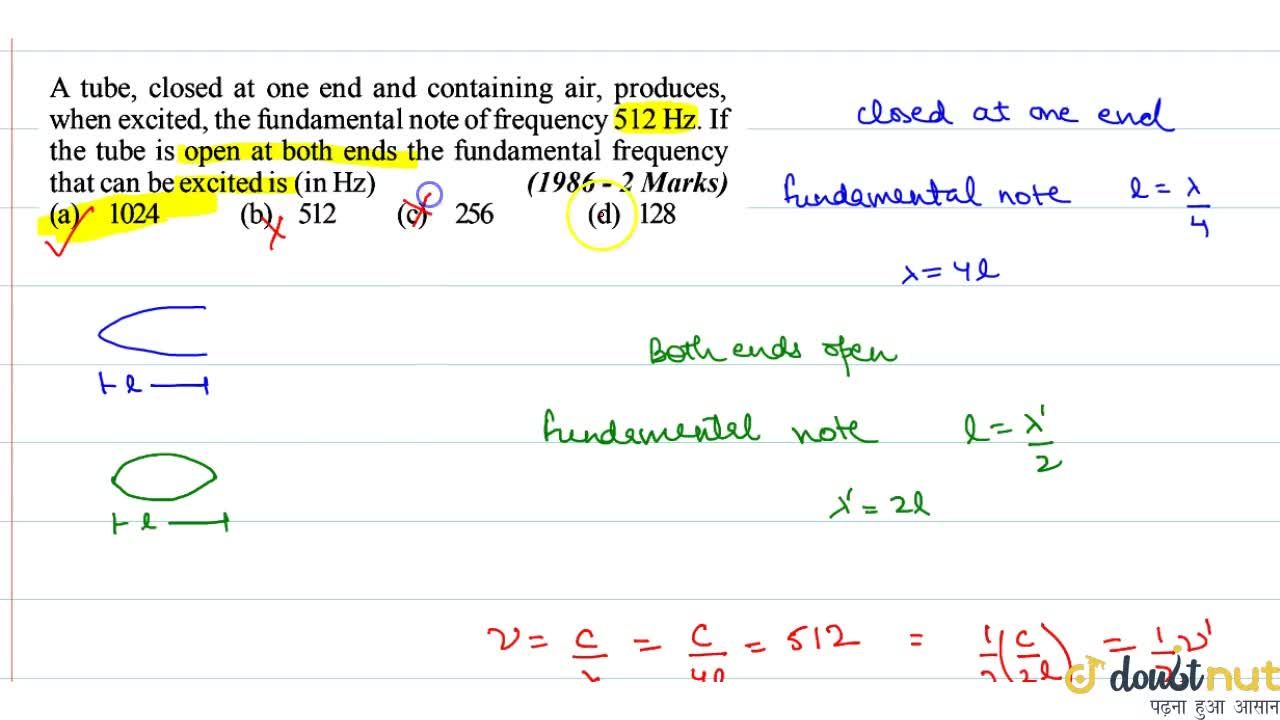 A tube, closed at one end and containing air, produces,
when excited, the fundamental note of frequency 512 Hz. If
the tube is open at both ends the fundamental frequency
that can be excited is (in Hz) (1986 - 2 Marks)
(a) 1024 (b) 512 (c) 256 (d) 128
closed at one end
fundamental note l = λ/4
λ = 4l
l
Both ends open
fundamental note l = λ'/2
λ' = 2l
l
ν = c/λ = c/4l = 512 = 1/2 (c/2l) = 1/2 ν'
doubtnut
पढ़ना हुआ आसान